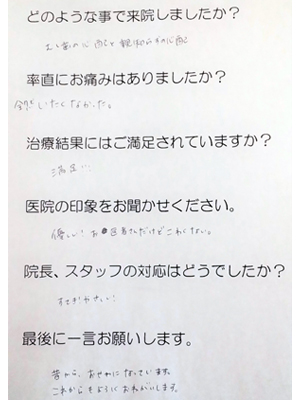 どのような事で来院しましたか？
むし歯の心配と親知らずの心配
率直にお痛みはありましたか？
全然いたくなかった。
治療結果にはご満足されていますか？
満足…
医院の印象をお聞かせください。
優しい！お医者さんだけどこわくない。
院長、スタッフの対応はどうでしたか？
すてき！やさしい！
最後に一言お願いします。
昔から、おせわになっています。
これからもよろしくおねがいします。